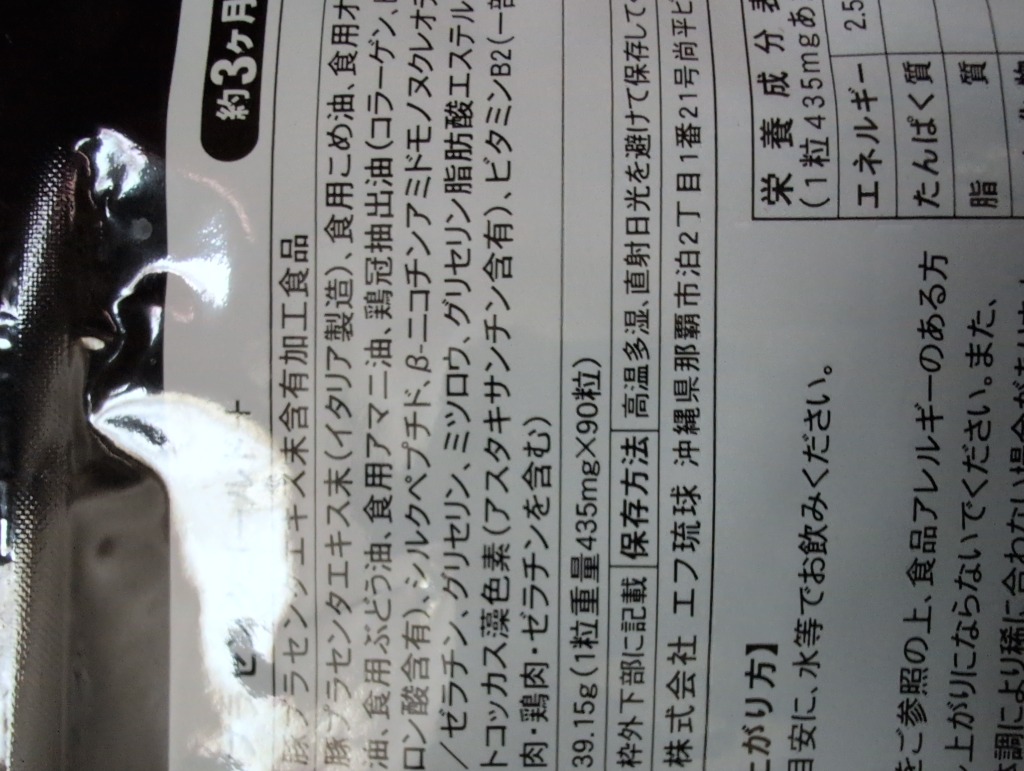 約3ヶ月
豚プラセンタエキス末含有加工食品
豚プラセンタエキス末(イタリア製造)、食用こめ油、食用オ
油、食用ぶどう油、食用アマニ油、鶏冠抽出油(コラーゲン、
ロン酸含有)、シルクペプチド、β-ニコチンアミドモノヌクレオチ
/ゼラチン、グリセリン、ミツロウ、グリセリン脂肪酸エステル
トコッカス藻色素(アスタキサンチン含有)、ビタミンB2(一部
肉・鶏肉・ゼラチンを含む)
39.15g(1粒重量435mg×90粒)
枠外下部に記載 保存方法 高温多湿、直射日光を避けて保存して
株式会社 エフ琉球 沖縄県那覇市泊2丁目1番21号尚平ビ
がり方】
目安に、水等でお飲みください。
をご参照の上、食品アレルギーのある方
上がりにならないでください。また、
体調により稀に合わない場合が
栄養成分表
(1粒435mgあ
エネルギー 2.5
たんぱく質
脂質